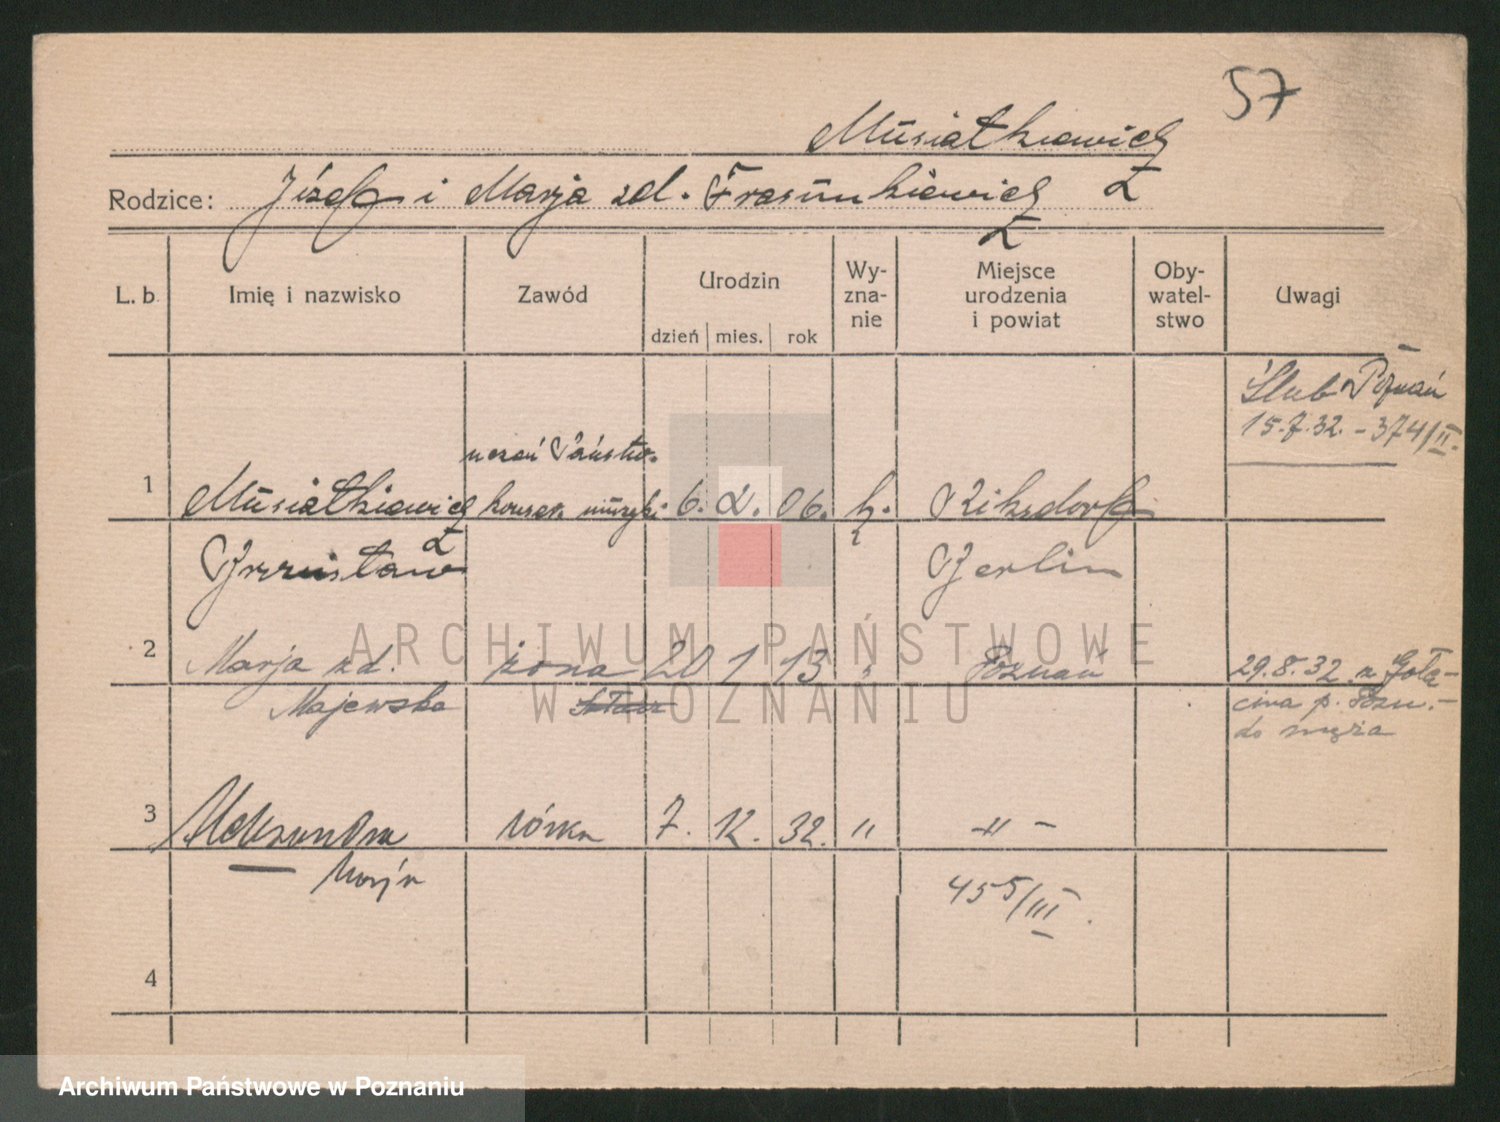 57
Musiałkiewicz
Rodzice: Józef i Marja zd. Frasunkiewicz
L. b. Imię i nazwisko Zawód Urodzin dzień mies. rok Wy-zna-nie Miejsce urodzenia i powiat Oby-watel-stwo Uwagi
Ślub Poznań
15.7.32. - 374/II.
uczeń Państw.
1 Musiałkiewicz konserw. muzyki 6. 2. 06. k. Riksdorf
Berlin
2 Marja zd. żona 20 1 13 " Poznań 29.8.32 z Gołę-
Majewska cina p. Pozn. -
do męża
3 Aleksandra córka 7. 12. 32. " -"-
Marja
455/III.
4
ARCHIWUM PAŃSTWOWE
W POZNANIU
Archiwum Państwowe w Poznaniu